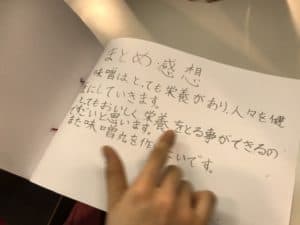 まとめ・感想
味噌はとっても栄養があり、人々を健
にしていきます。
してもおいしく栄養をとる事ができるの
すごいと思います。
また味噌丸を作 いです。